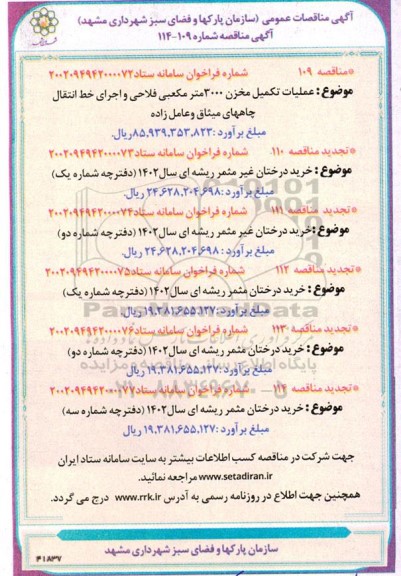 آگهی مناقصات عمومی (سازمان پارکها و فضای سبز شهرداری مشهد)
آگهی مناقصه شماره ۱۰۹-۱۱۴
*مناقصه ۱۰۹ شماره فراخوان سامانه ستاد۲۰۰۲۰۹۴۹۴۲۰۰۰۰۷۲
موضوع : عملیات تکمیل مخزن ۳۰۰۰متر مکعبی فلاحی و اجرای خط انتقال
چاههای میثاق وعامل زاده
مبلغ برآورد :۸۵,۹۳۹,۳۵۳,۸۲۳ریال.
*تجدید مناقصه ۱۱۰ شماره فراخوان سامانه ستاد۲۰۰۲۰۹۴۹۴۲۰۰۰۰۷۳
موضوع : خرید درختان غیر مثمر ریشه ای سال۱۴۰۲ (دفترچه شماره یک)
مبلغ برآورد :۲۴,۶۲۸,۲۰۴,۶۹۸ ریال.
*تجدید مناقصه ۱۱۱ شماره فراخوان سامانه ستاد۲۰۰۲۰۹۴۹۴۲۰۰۰۰۷۴
موضوع :خرید درختان غیر مثمر ریشه ای سال۱۴۰۲ (دفترچه شماره دو)
مبلغ برآورد : ۲۴,۶۲۸,۲۰۴,۶۹۸ ریال.
*تجدید مناقصه ۱۱۲ شماره فراخوان سامانه ستاد۲۰۰۲۰۹۴۹۴۲۰۰۰۰۷۵
موضوع : خرید درختان مثمر ریشه ای سال۱۴۰۲ (دفترچه شماره یک)
مبلغ برآورد :۱۹,۳۸۱,۶۵۵,۱۲۷ ریال.
*تجدید مناقصه ۱۱۳ شماره فراخوان سامانه ستاد۲۰۰۲۰۹۴۹۴۲۰۰۰۰۷۶
موضوع : خرید درختان مثمر ریشه ای سال۱۴۰۲ (دفترچه شماره دو)
مبلغ برآورد :۱۹,۳۸۱,۶۵۵,۱۲۷ ریال.
*تجدید مناقصه ۱۱۴ شماره فراخوان سامانه ستاد۲۰۰۲۰۹۴۹۴۲۰۰۰۰۷۷
موضوع : خرید درختان مثمر ریشه ای سال۱۴۰۲ (دفترچه شماره سه)
مبلغ برآورد :۱۹,۳۸۱,۶۵۵,۱۲۷ ریال
جهت شرکت در مناقصه کسب اطلاعات بیشتر به سایت سامانه ستاد ایران
www.setadiran.ir مراجعه نمائید.
همچنین جهت اطلاع در روزنامه رسمی به آدرس www.rrk.ir درج می گردد.
سازمان پارکها و فضای سبز شهرداری مشهد
۴۱۸۳۷